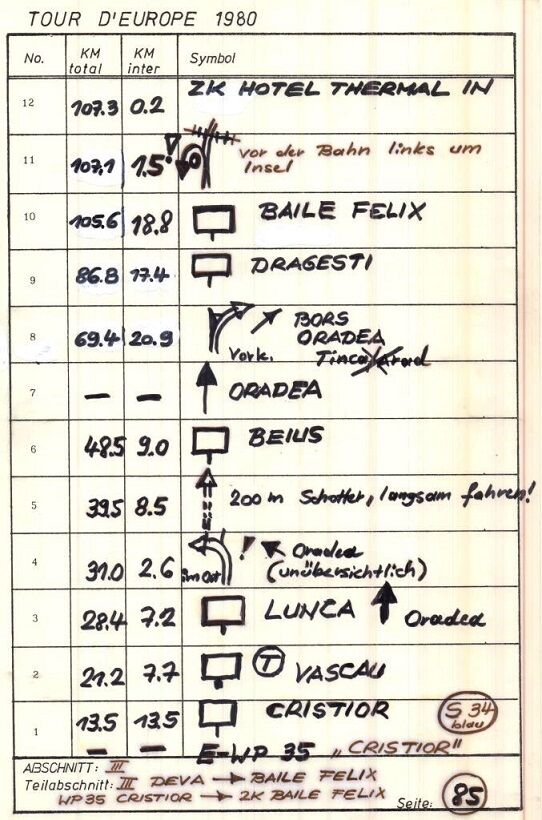 TOUR D'EUROPE 1980
No. KM total KM inter Symbol
12 107.3 0.2 ZK HOTEL THERMAL IN
11 107,1 1.5 vor der Bahn links um
Insel
10 105.6 18.8 BAILE FELIX
9 86.8 17.4 DRAGESTI
8 69.4 20.9 Vork. BORS
ORADEA
Tinca Arad
7 — — ORADEA
6 48.5 9.0 BEIUS
5 39.5 8.5 200 m Schotter, langsam fahren!
4 31.0 2.6 im Ort ! Oradea
(unübersichtlich)
3 28.4 7.2 LUNCA Oradea
2 21.2 7.7 T VASCAU
1 13.5 13.5 CRISTIOR S 34
blau
— — E-WP 35 „CRISTIOR"
ABSCHNITT: III
Teilabschnitt: III DEVA → BAILE FELIX
WP 35 CRISTIOR → ZK BAILE FELIX Seite: 85